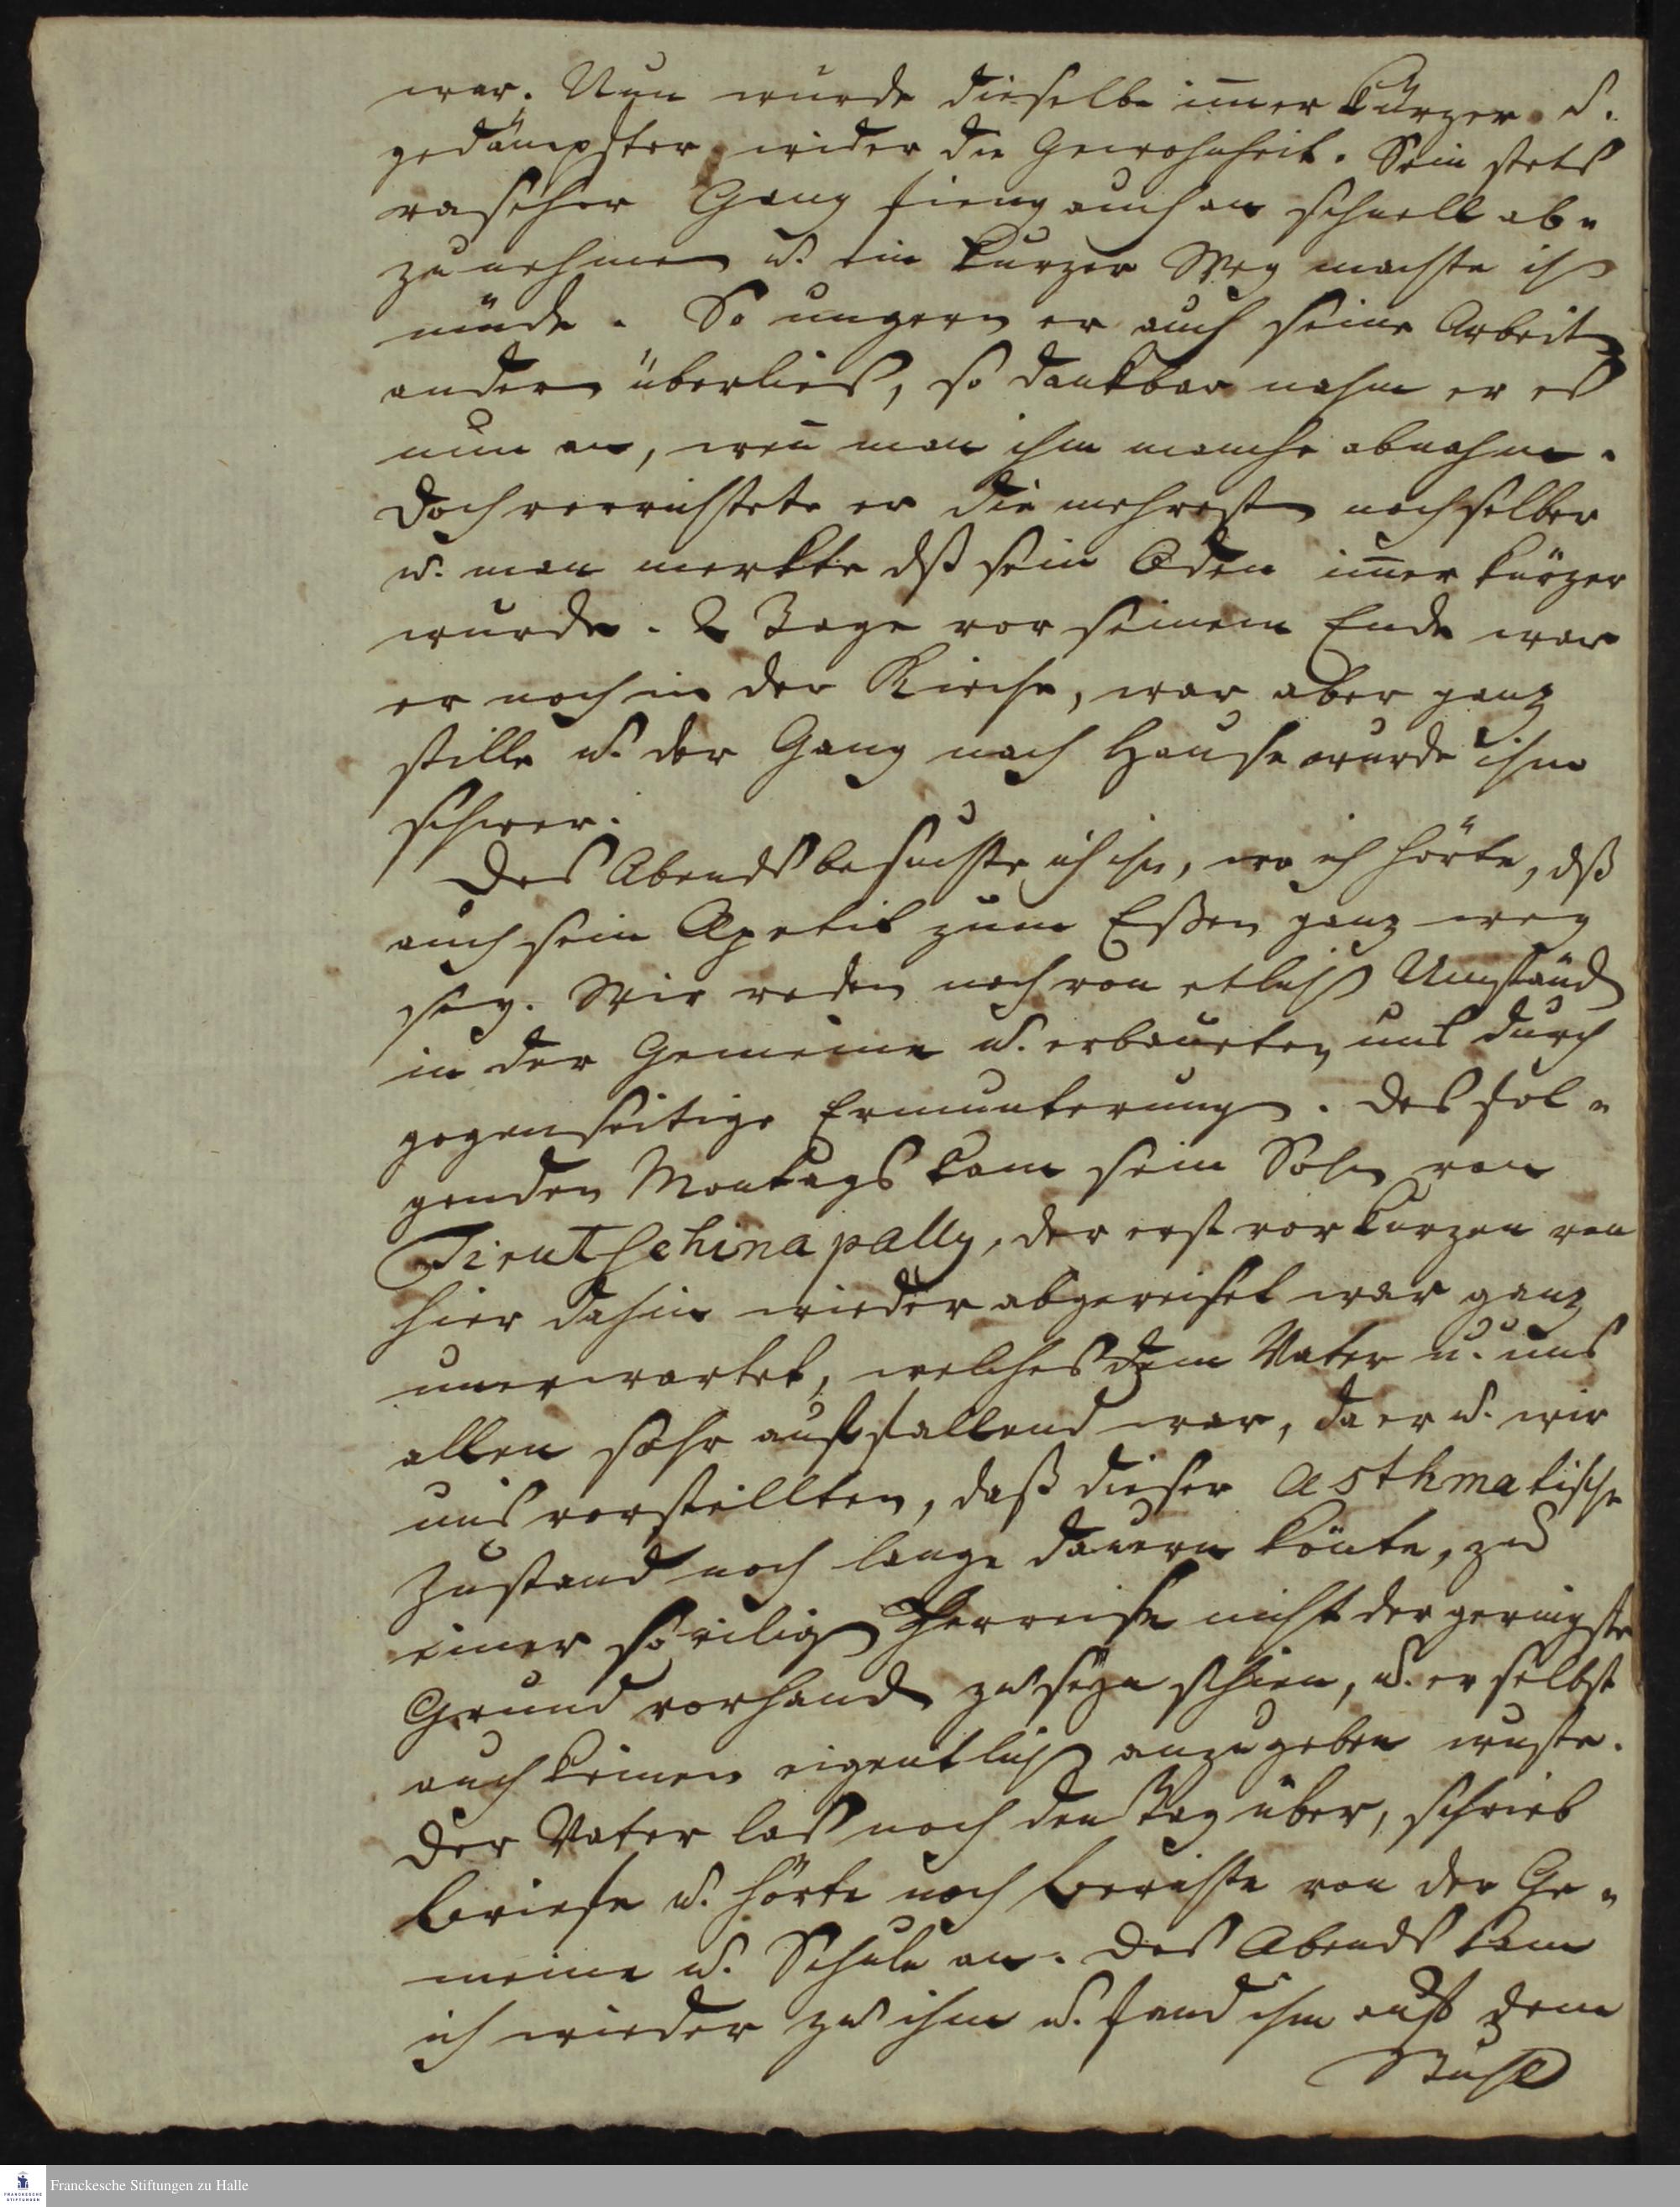 war. Nun wurde dieselbe im̅er kürzer u.
gedämpfter wider die Gewohnheit. Sein stets
rascher Gang fieng auch an schnell ab-
zunehmen u. ein kurzer Weg machte ihn
müde. So ungern er auch seine Arbeiten
andern überließ, so dankbar nahm er es
nun an, wen̅ man ihm manche abnahm.
Doch verrichtete er die mehresten noch selber
u. man merkte dß sein Oden im̅er kürzer
wurde. 2 Tage vor seinem Ende war
er noch in der Kirche, war aber ganz
stille u. der Gang nach Hause wurde ihm
schwer.
Des Abends besuchte ich ihn, wo ich hörte, dß
auch sein Apetit zum Eßen ganz weg
sey. Wir reden noch von etlichen Umständen
in der Gemeine u. erbaueten uns durch
gegenseitige Ermunterungen. Des fol-
genden Montags kam sein Sohn von
Tirutschinapally, der erst vor kurzen von
hier dahin wieder abgereiset war ganz
unerwartet, welches dem Vater u. uns
allen sehr auffallend war, da er u. wir
uns vorstellten, daß dieser Asthmatische
Zustand noch lange dauern kön̅te, zu
einer so eiligen Herreise nicht der geringste
Grund vorhanden zu seyn schien, u. er selbst
auch keinen eigentlichen anzugeben wuste.
Der Vater las noch den Tag über, schrieb
Briefe u. hörte noch Berichte von der Ge-
meine u. Schule an. Des Abends kam
ich wieder zu ihm u. fand ihn auf dem
Stuhl
Franckesche Stiftungen zu Halle
FRANCKESCHE
STIFTUNGEN